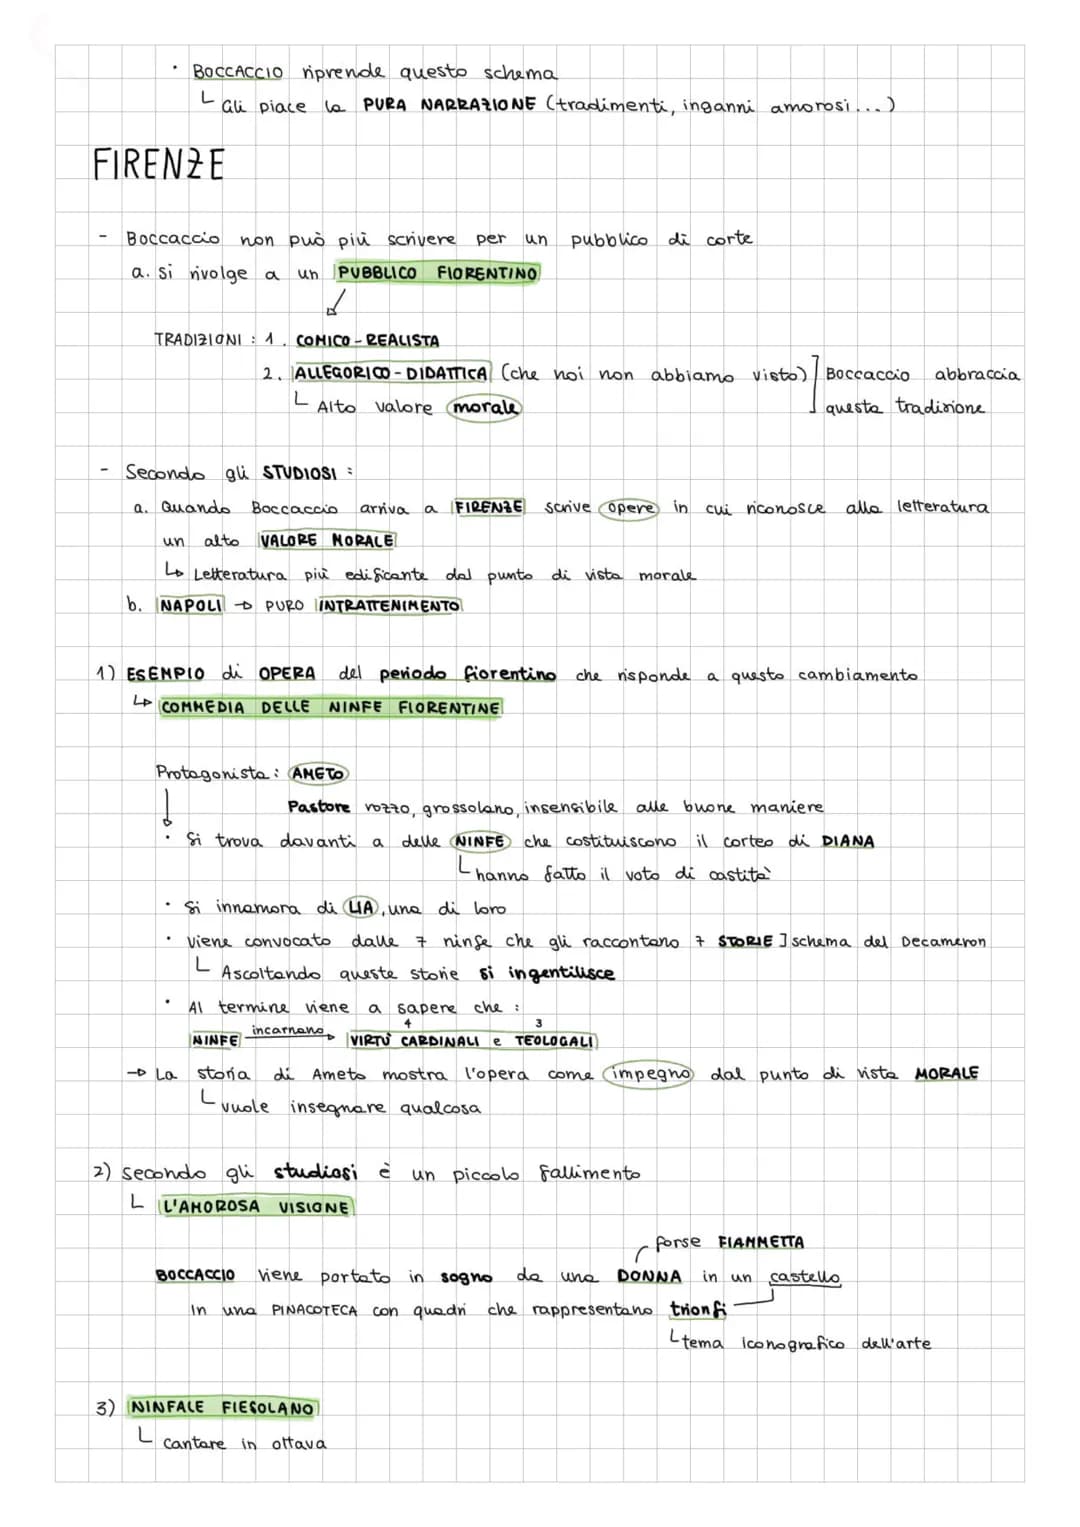 · BOCCACCIO riprende questo schema
└ Gli piace la PURA NARRAZIONE (tradimenti, inganni amorosi...)
FIRENZE
- Boccaccio non può più scrivere per un pubblico di corte
a. si rivolge a un PUBBLICO FIORENTINO
TRADIZIONI : 1. COMICO-REALISTA
2. ALLEGORICO-DIDATTICA (che noi non abbiamo visto) ] Boccaccio abbraccia
└ Alto valore morale questa tradizione
- Secondo gli STUDIOSI :
a. Quando Boccaccio arriva a FIRENZE scrive opere in cui riconosce alla letteratura
un alto VALORE MORALE
↳ Letteratura più edificante dal punto di vista morale
b. NAPOLI → PURO INTRATTENIMENTO
1) ESEMPIO di OPERA del periodo fiorentino che risponde a questo cambiamento
↳ COMMEDIA DELLE NINFE FIORENTINE
Protagonista : AMETO
Pastore rozzo, grossolano, insensibile alle buone maniere
· Si trova davanti a delle NINFE che costituiscono il corteo di DIANA
└ hanno fatto il voto di castità
· Si innamora di LIA, una di loro
· Viene convocato dalle 7 ninfe che gli raccontano 7 STORIE ] schema del Decameron
└ Ascoltando queste storie si ingentilisce
· Al termine viene a sapere che :
incarnano 4 3
NINFE → VIRTÙ CARDINALI e TEOLOGALI
→ La storia di Ameto mostra l'opera come impegno dal punto di vista MORALE
└ vuole insegnare qualcosa
2) secondo gli studiosi è un piccolo fallimento
└ L'AMOROSA VISIONE
forse FIAMMETTA
BOCCACCIO viene portato in sogno da una DONNA in un castello
In una PINACOTECA con quadri che rappresentano trionfi
└ tema iconografico dell'arte
3) NINFALE FIESOLANO
└ cantare in ottava